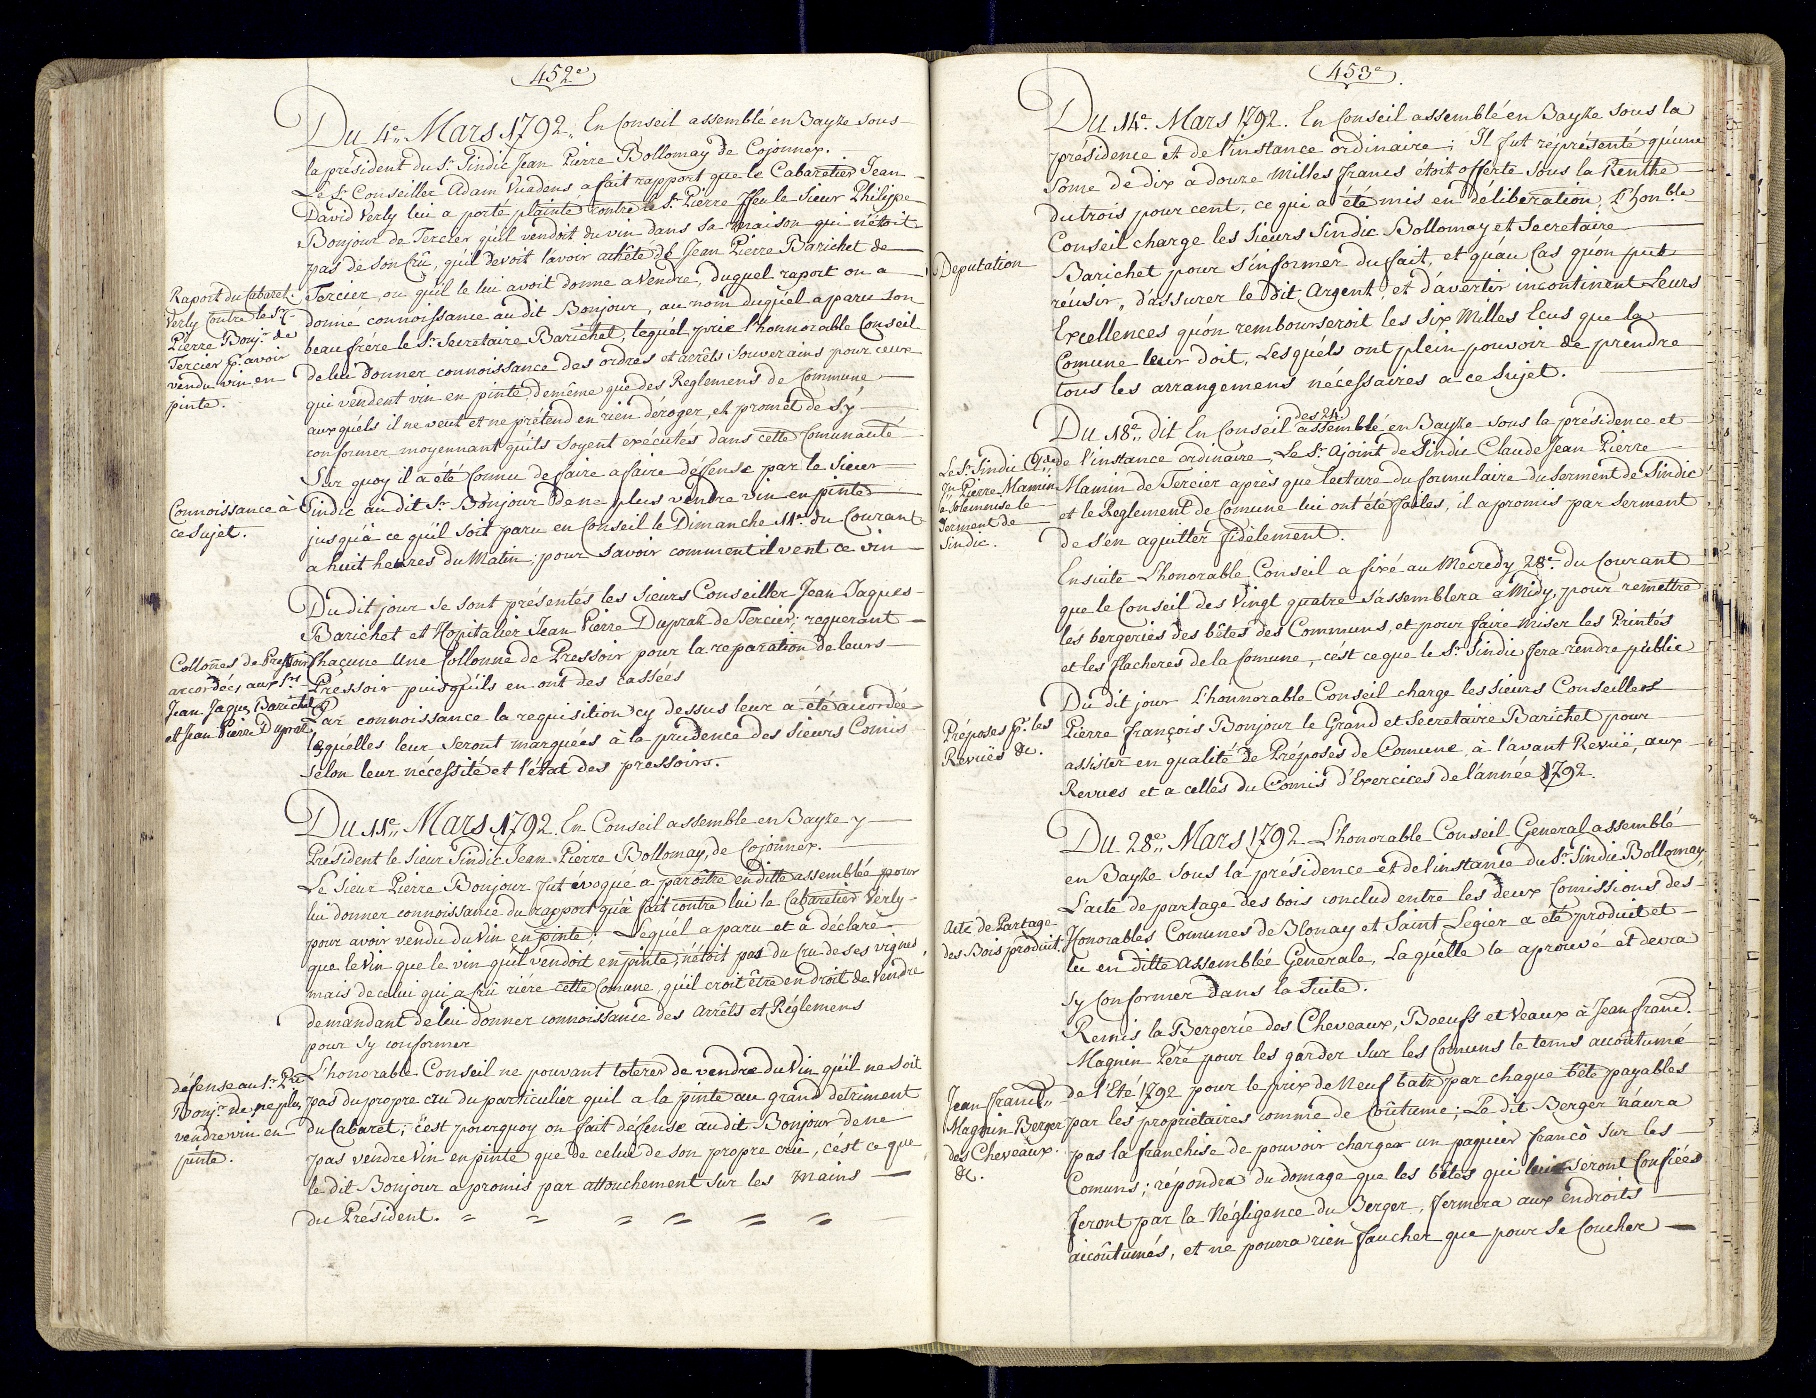 452e
Du 4e. Mars 1792. En Conseil assemblé en Bayze sous
la président du Sr. Sindic Jean Pierre Bollomay de Cojonnex.
Le Sr. Conseiller Adam Vuadens a fait rapport que le Cabaretier Jean
David Verly lui a porté plainte contre le Sr. Pierre ffeu le Sieur Philippe
Bonjour de Tercier qu'il vendoit du vin dans sa maison qui n'étoit
pas de son Crû, qu'il devoit l'avoir achêté de Jean Pierre Barichet de
Tercier, ou qu'il le lui avoit donné a Vendre, duquel raport on a
donné connoissance au dit Bonjour, au nom duquel a paru son
beau frere le Sr. Secretaire Barichet, lequel prie l'honnorable Conseil
de lui donner connoissance des ordres et arrêts Souverains pour ceux
qui vendent vin en pinte, demême que des Reglemens de Commune
aux quels il ne veut et ne prétend en rien déroger, et promet de s'y
conformer moyennant qu'ils soyent exécutés dans cette Comunauté
Sur quoy il a été Connu de faire a faire défense par le Sieur
Sindic au dit Sr. Bonjour de ne plus vendre vin en pinte
jusqu'à ce qu'il soit paru en Conseil le Dimanche 11e. du Courant
a huit heures du Matin, pour savoir comment il vent ce vin
Raport du Cabaret.
Verly Contre le Sr.
Pierre Bonj.r de
Tercier pr. avoir
vendu vin en
pinte.
Connoissance à
ce sujet.
Du dit jour se sont présentés les Sieurs Conseiller Jean Jaques
Barichet et Hopitalier Jean Pierre Duprat de Tercier, requerant
Chacune Une Collonne de Pressoir pour la reparation de leurs
Pressoir puisqu'ils en ont des cassées
Par connoissance la requisition cy dessus leur a été accordée
lesquelles leur seront marquées à la prudence des Sieurs Comis
selon leur nécessité et l'état des pressoirs.
Collones de Pressoir
accordées aux Srs.
Jean Jaques Barichet
et Jean Pierre Duprat
Du 11e. Mars 1792. En Conseil assemblé en Bayze y
Président le Sieur Sindic Jean Pierre Bollomay, de Cojonnex.
Le Sieur Pierre Bonjour fut évoqué a paroître en ditte assemblée pour
lui donner connoissance du rapport qu'a fait contre lui le Cabaretier Verly
pour avoir vendu du Vin en pinte; Lequel a paru et a déclaré
que le Vin que le vin qu'il vendoit en pinte, n'étoit pas du Cru de ses vignes,
mais de celui qui a crû riére cette Comune, qu'il croit être en droit de Vendre
demandant de lui donner connoissance des Arrêts et Réglemens
pour s'y conformer
L'honorable Conseil ne pouvant tolerer de vendre du Vin qu'il ne soit
pas du propre cru du particulier qu'il a la pinte au grand detriment
du Cabaret, c'est pourquoy on fait defense au dit Bonjour de ne
pas vendre Vin en pinte que de celui de son propre crû, c'est ce que
le dit Bonjour a promis par attouchement sur les mains
du Président.
défense au Sr. Pre.
Bonj.r de ne plus
vendre vin en
pinte.
453e
Du 14e. Mars 1792. En Conseil assemblé en Bayze sous la
présidence et de l'instance ordinaire; Il fut représenté qu'une
Some de dix a douze milles francs étoit offerte sous la Renthe
du trois pour cent, ce qui a été mis en déliberation, L'hon.ble
Conseil charge les Sieurs Sindic Bollomay et Secretaire
Barichet pour s'informer du fait, et qu'au Cas qu'on put
réusir, d'assurer le dit Argent, et d'avertir incontinent Leurs
Excellences qu'on rembourseroit les Six Milles Ecus que la
Comune leur doit, Lesquels ont plein pouvoir de prendre
tous les arrangemens nécessaires a ce sujet.
Deputation
Du 18e. dit En Conseil des 24. assemblé en Bayze sous la présidence et
de l'instance ordinaire, Le Sr. Ajoint de Sindic Claude Jean Pierre
Mamin de Tercier après que lecture du formulaire du Serment de Sindic
et le Reglement de Comune lui ont été faites, il a promis par serment
de s'en aquitter fidèlement.
Le Sr. Sindic Cl.de
Jn. Pierre Mamin
a solemnise le
Serment de
Sindic.
Ensuite L'honorable Conseil a fixé au Mecredy 28e. du Courant
que le Conseil des Vingt quatre s'assemblera à Midy, pour remettre
les bergeries des bêtes des Communs, et pour faire miser les Printés
et les flacheres de la Comune, c'est ce que le Sr. Sindic fera rendre public
Du dit jour L'honnorable Conseil charge les Sieurs Conseillers
Pierre françois Bonjour le Grand et Secretaire Barichet pour
assister en qualité de Préposés de Comune à l'avant Revuë, aux
Revues et a celles du Comis d'Exercices de l'année 1792.
Préposes pr. les
Revuës &c.
Du 28e. Mars 1792. L'honorable Conseil General assemblé
en Bayze sous la présidence et de l'instance du Sr. Sindic Bollomay
L'acte de partage des bois conclud entre les deux Comissions des
Honorables Comunes de Blonay et Saint Legier a été produit et
lu en ditte Assemblée Generale, Laquelle la aprouvé et devra
s'y Conformer dans la suite.
Acte de Partage
des Bois produit.
Remis la Bergerie des Cheveaux, Boeufs et Veaux à Jean franç.
Magnin Péré pour les garder sur les Comuns le tems accoûtumé
de l'Eté 1792 pour le prix de Neuf batz par chaque bête payables
par les propriétaires comme de Coûtume; Le dit Berger n'aura
pas la franchise de pouvoir charger un paquier francò sur les
Comuns; répondra du domage que les bêtes qui lui seront Confiées
feront par la Négligence du Berger, fermera aux endroits
accoûtumés, et ne pourra rien faucher que pour se Coucher
Jean franç.
Magnin Berger
des Cheveaux.
&c.